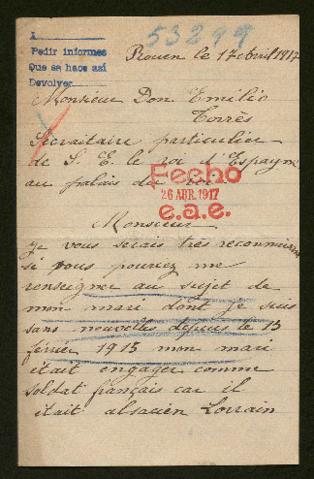 A
Pedir informes
Que se hace así
Devolver
53299
Rouen le 17 Avril 1917
Monsieur Don Emilio
Torrès
Secrétaire particulier
de S. E. le roi d'Espagne
au palais du roi
Fecho
26 ABR. 1917
e.a.e.
Monsieur
Je vous serais très reconnaissante
si vous pouviez me
renseigner au sujet de
mon mari dont je suis
sans nouvelles depuis le 15
février 1915 mon mari
était engager comme
soldat français car il
était alsacien Lorrain